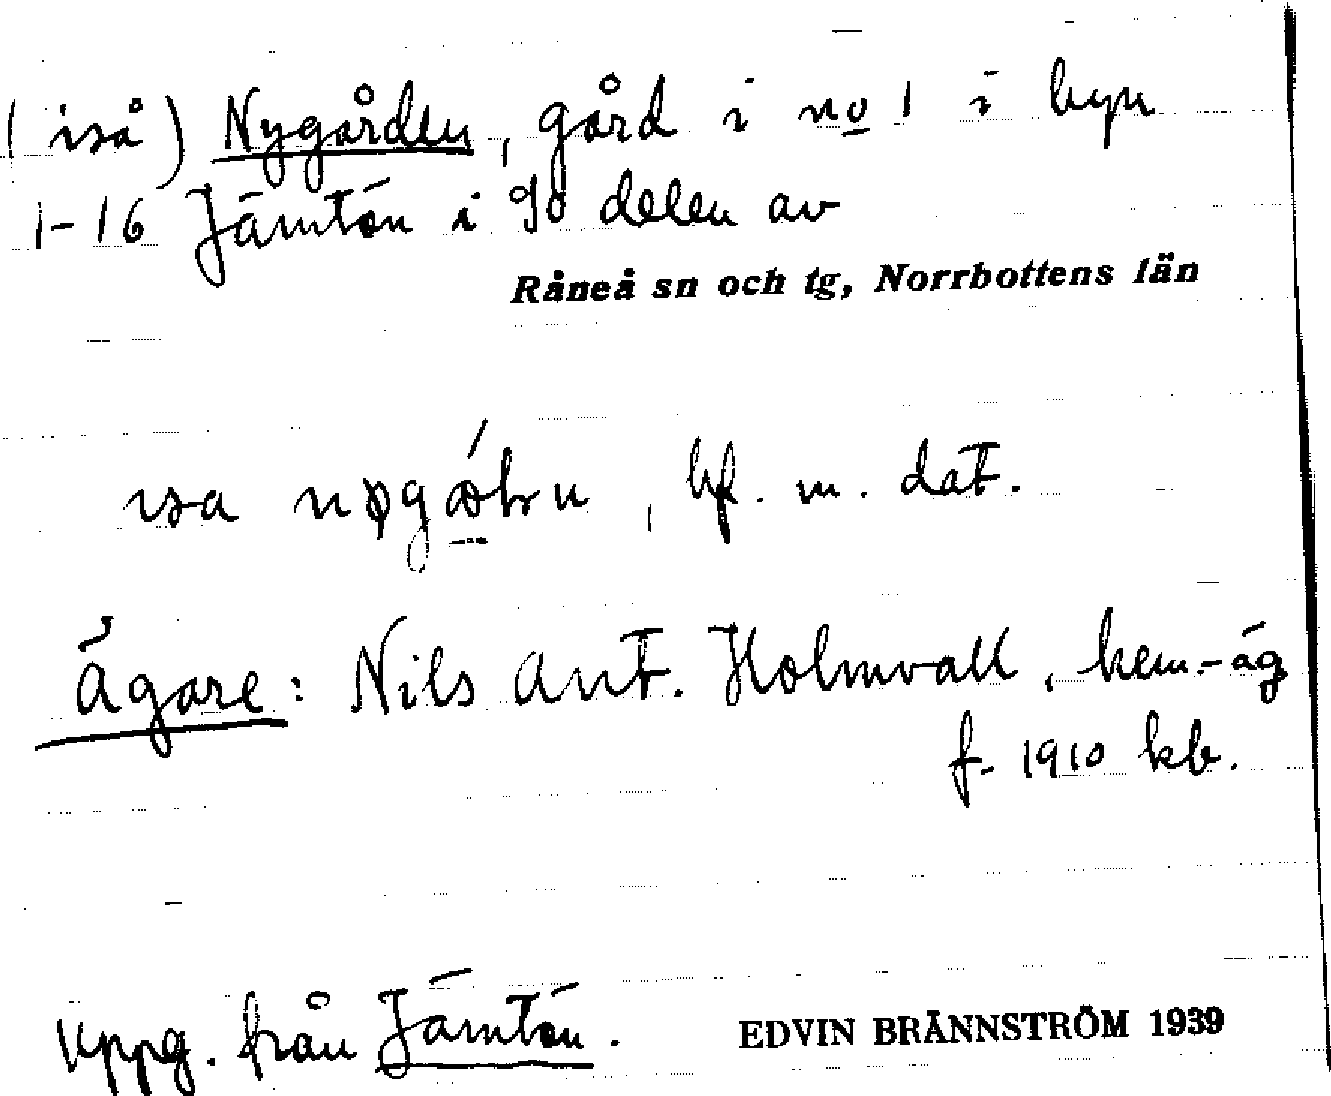 (iså) Nygården, gård i no 1 i byn
1-16 Jämtön i go delen av
Råneå sn och tg, Norrbottens län
, bf. m. dat.
Ägare: Nils Ant. Holmvall, hem.-äg
f. 1910 kb.
Uppg. från Jämtön. EDVIN BRÄNNSTRÖM 1939